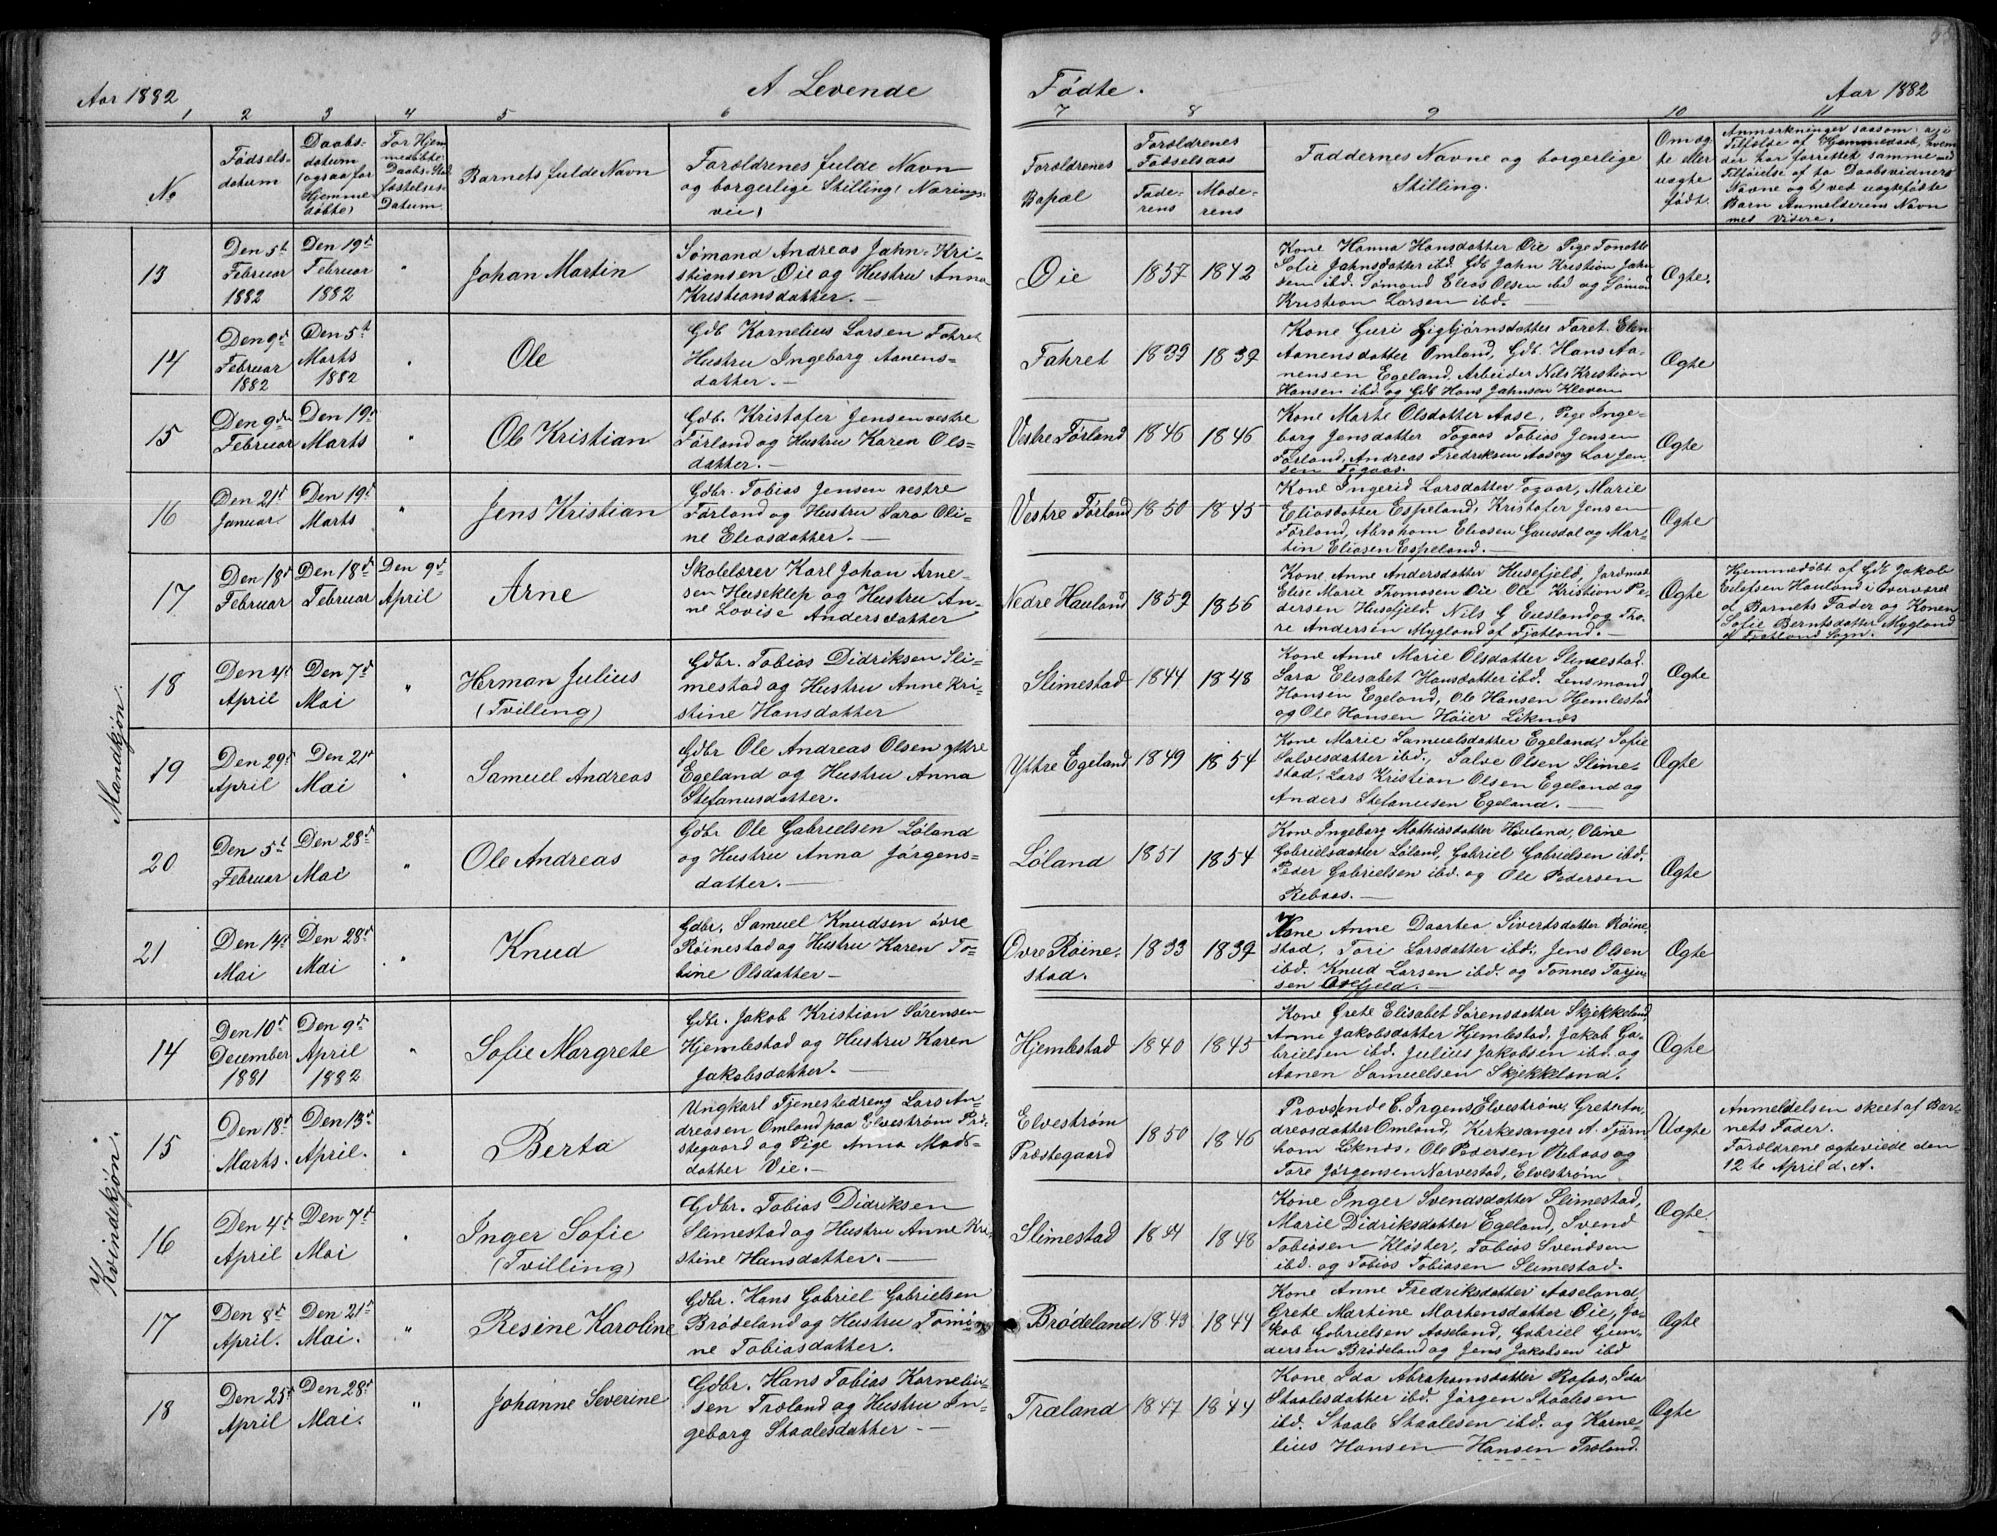 Aar 1882
A Levende
Fødte.
Aar 1882
1 2 3 4 5 6 7 8 9 10 11
No
Fødsels-
datum
Daabs-
datum
(ogsaa for
Hjemme-
døbte)
For Hjem-
medøbte
Daabs Stad-
fæstelses-
Datum.
Barnets fulde Navn
Forældrenes fulde Navn
og borgerlige Stilling (Nærings-
vei)
Forældrenes
Bopæl
Forældrenes
Fødselsaar
Fade-
rens
Mode-
rens
Faddernes Navne og borgerlige
Stilling.
Om æg-
te eller
uægte
født.
Anmærkninger saasom: a, i
Tilfælde af Hjemmedaab, hvem
der har forrettet samme med
Tilføielse af to Daabsvidners
Navne og b, ved uægtefødte
Barn Anmelderens Navn
mes videre.
Mandkjøn.
13
Den 5t
Februar
1882
Den 19d
Februar
1882
"
Johan Martin
Sømand Andreas Jahn Kri-
stiansen Øie og Hustru Anna
Kristiansdatter. —
Øie
1857
1842
Kone Hanna Hansdatter Øie Pige Tonette
Sofie Jahnsdatter ibd. Gdb Jahn Kristian Jahn
sen ibd. Sømand Elias Olsen ibd og Sømand
Kristian Larsen ibd.
Ægte.
14
Den 9d
Februar
1882
Den 5t
Marts
1882
"
Ole
Gdb Kornelius Larsen Fahret
Hustru Ingeborg Aanens-
datter. —
Fahret
1839
1839
Kone Guri Sigbjørnsdatter Faret. Elen
Aanensdatter Omland, Gdb. Hans Aa-
nensen Egeland. Arbeider Nils Kristian
Hansen ibd. og Gdb Hans Jahnsen Kleven
Ægte
15
Den 9de
Februar
Den 19d
Marts
"
Ole Kristian
Gdb. Kristofer Jensen vestre
Førland og Hustru Karen Ols-
datter. —
Vestre Førland
1846
1846
Kone Marte Olsdatter Aase, Pige Inge-
borg Jensdatter Togaas Tobias Jensen
Førland, Andreas Fredriksen Aase og Lar Jen
sen Togaas.
Ægte
16
Den 21d
Januar
Den 19d
Marts
"
Jens Kristian
Gdbr. Tobias Jensen vestre
Førland og Hustru Sara Oli-
ne Eliasdatter. —
Vestre Førland
1850
1845
Kone Ingerid Larsdatter Togaas, Marie
Eliasdatter Espeland, Kristofer Jensen
Førland, Abraham Eliasen Gausdal og Mar-
tin Eliasen Espeland. —
Ægte
17
Den 18d
Februar
Den 18d
Februar
Den 9d
April
Arne
Skolelærer Karl Johan Arne-
sen Huseklep og Hustru An-
ne Lovise Andersdatter
Nedre Hauland
1859
1856
Kone Anne Andersdatter Husefjeld, Jordmod
Elise Marie Thomasen Øie Ole Kristian Pe-
dersen Husefjeld. Nils G Eieland og Tho-
re Andersen Mygland af Fjotland. —
Ægte
Hjemmedøbt af Gdb Jakob
Eilefsen Hauland i Overværd
af Barnets Fader og Konen
Sofie Berntsdatter Mygland
af Fjotland Sogn.
18
Den 4d
April
Den 7d
Mai
"
Herman Julius
(Tvilling)
Gdbr. Tobias Didriksen Sli-
mestad og Hustru Anne Kri-
stine Hansdatter
Slimestad
1844
1848
Kone Anne Marie Olsdatter Slimestad.
Sara Elisabet Hansdatter ibd. Lensmand
Hansen Egeland, Ole Hansen Hjemlestad
og Ole Hansen Høier Liknæs
Ægte
19
Den 29d
April
Den 21d
Mai
"
Samuel Andreas
Gdbr Ole Andreas Olsen yttre
Egeland og Hustru Anna
Stefanusdatter.
Yttre Egeland
1849
1854
Kone Marie Samuelsdatter Egeland, Sofie
Salvesdatter ibd., Salve Olsen Slime-
stad, Lars Kristian Olsen Egeland og
Anders Stefanusen Egeland. —
Ægte
20
Den 5t
Februar
Den 28d
Mai
"
Ole Andreas
Gdbr Ole Gabrielsen Løland
og Hustru Anna Jørgens-
datter. —
Løland
1851
1854
Kone Ingeborg Mathiasdatter Hauland, Oline
Gabrielsdatter Løland, Gabriel Gabrielsen ibd.
Peder Gabrielsen ibd. og Ole Pedersen
Rebaas. —
Ægte
21
Den 14d
Mai
Den 28d
Mai
"
Knud
Gdbr. Samuel Knudsen øvre
Røinestad og Hustru Karen To-
bine Olsdatter —
Øvre Røine-
stad.
1833
1839
Kone Anne Daartea Sivertsdatter Røine
stad. Tori Larsdatter ibd., Jens Olsen
ibd. Knud Larsen ibd. og Tønnes Tarjei
sen
Ægte
Kvindekjøn.
14
Den 10d
December
1881
Den 9d
April
1882
"
Sofie Margrete
Gdbr. Jakob Kristian Sørensen
Hjemlestad og Hustru Karen
Jakobsdatter. —
Hjemlestad
1840
1845
Kone Grete Elisabet Sørensdatter Skjekkeland
Anne Jakobsdatter Hjemlestad, Jakob Ga-
brielsen ibd. Julius Jakobsen ibd. og
Aanen Samuelsen Skjekkeland.
Ægte
15
Den 18d
Marts.
Den 13d
April.
"
Berta
Ungkarl Tjenestedreng Lars An-
dreasen Omland paa Elvestrøm Præ-
stegaard og Pige Anna Mads-
datter Vie. —
Elvestrøm
Præstegaard
1850
1846
Provsende C. Irgens Elvestrøm, Grete An-
dreasdatter Omland, Kirkesanger A. Tjørn
hom Liknæs, Ole Pedersen Rebaas og
Tore Jørgensen Narvestad, Elvestrøm
Uægte
Anmeldelsen skeet af Bar-
nets Fader.
Forældrene ægteviede den
12te April d. A.
16
Den 4d
April
Den 7d
Mai
"
Inger Sofie
(Tvilling)
Gdbr. Tobias Didriksen
Slimestad og Hustru Anne Kri-
stine Hansdatter. —
Slimestad
1844
1848
Kone Inger Svendsdatter Slimestad,
Marie Didriksdatter Egeland, Svend
Tobiasen Kløster, Tobias Svendsen
ibd. og Tobias Tobiasen Slimestad.
Ægte
17
Den 8d
April.
Den 21d
Mai.
"
Resine Karoline
Gdbr. Hans Gabriel Gabrielsen
Brødeland og Hustru Tomi-
ne Tobiasdatter.
Brødeland
1843
1844
Kone Anne Fredriksdatter Aaseland,
Grete Martine Mortensdatter Øie, Ja-
kob Gabrielsen Aaseland, Gabriel Gun-
dersen Brødeland og Jens Jakobsen ibd
Ægte
18
Den 25d
April
Den 28d
Mai.
"
Johanne Severine
Gdbr. Hans Tobias Korneliu-
sen Træland og Hustru In-
geborg Staalesdatter —
Træland
1847
1844
Kone Ida Abrahamsdatter Rafos, Ida
Staalesdatter ibd. Jørgen Staalesen
ibd. Staale Staalesen ibd. og Korne-
lius Hansen — Hansen Træland.
Ægte